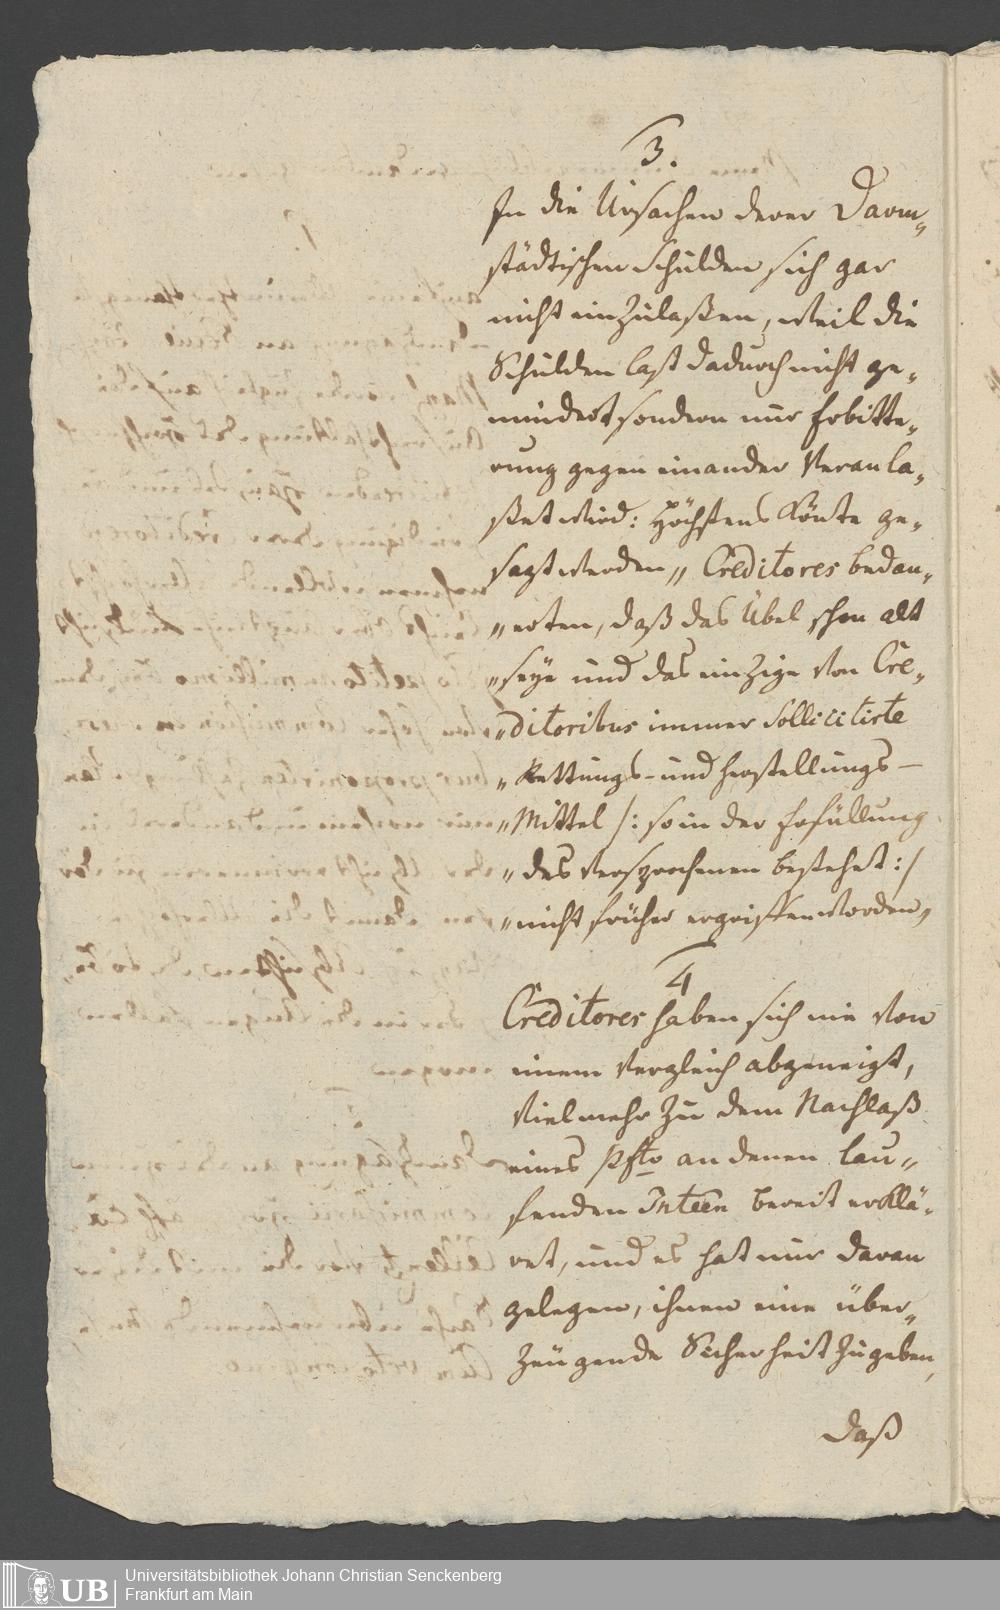 3.
In die Ursachen derer Darm„
städtischen Schulden sich gar
nicht einzulaßen, weil die
Schulden last dadurch nicht ge„
mindert sondern nur Erbitte„
rung gegen einander veranla„
ßet wird: Höchstens könte ge„
sagt werden „ Creditores bedau„
„erten, daß das Übel schon alt
„seye und das einzige von Cre„
„ditoribus immer sollicitirte
„Rettungs- und Herstellungs-
„Mittel /: so in der Erfüllung
„des versprochenen bestehet :/
„nicht früher ergriffen worden„
4
Creditores haben sich nie von
einem Vergleich abgeneigt,
vielmehr zu dem Nachlaß
eines pCto an denen lau„
fenden Inteen bereit erklä„
ret, und es hat nur daran
gelegen, ihnen eine über„
zeugende Sicherheit zu geben,
daß
UB
Universitätsbibliothek Johann Christian Senckenberg
Frankfurt am Main